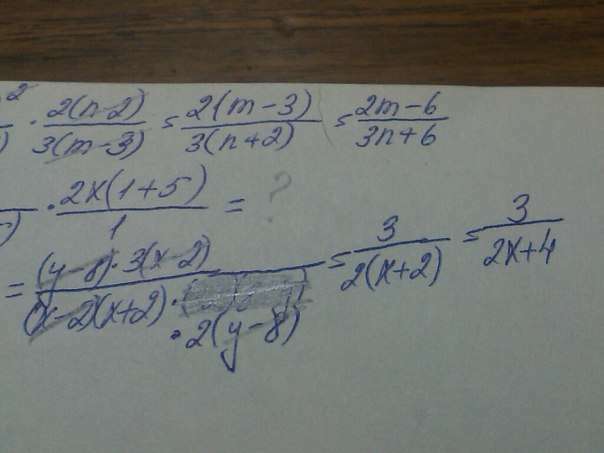 2
) · 2(n-2)/3(m-3) = 2(m-3)/3(n+2) = 2m-6/3n+6
) · 2x(1+5)/1 = ?
= (y-8)·3(x-2)/(x-2)(x+2)· ·2(y-8) = 3/2(x+2) = 3/2x+4